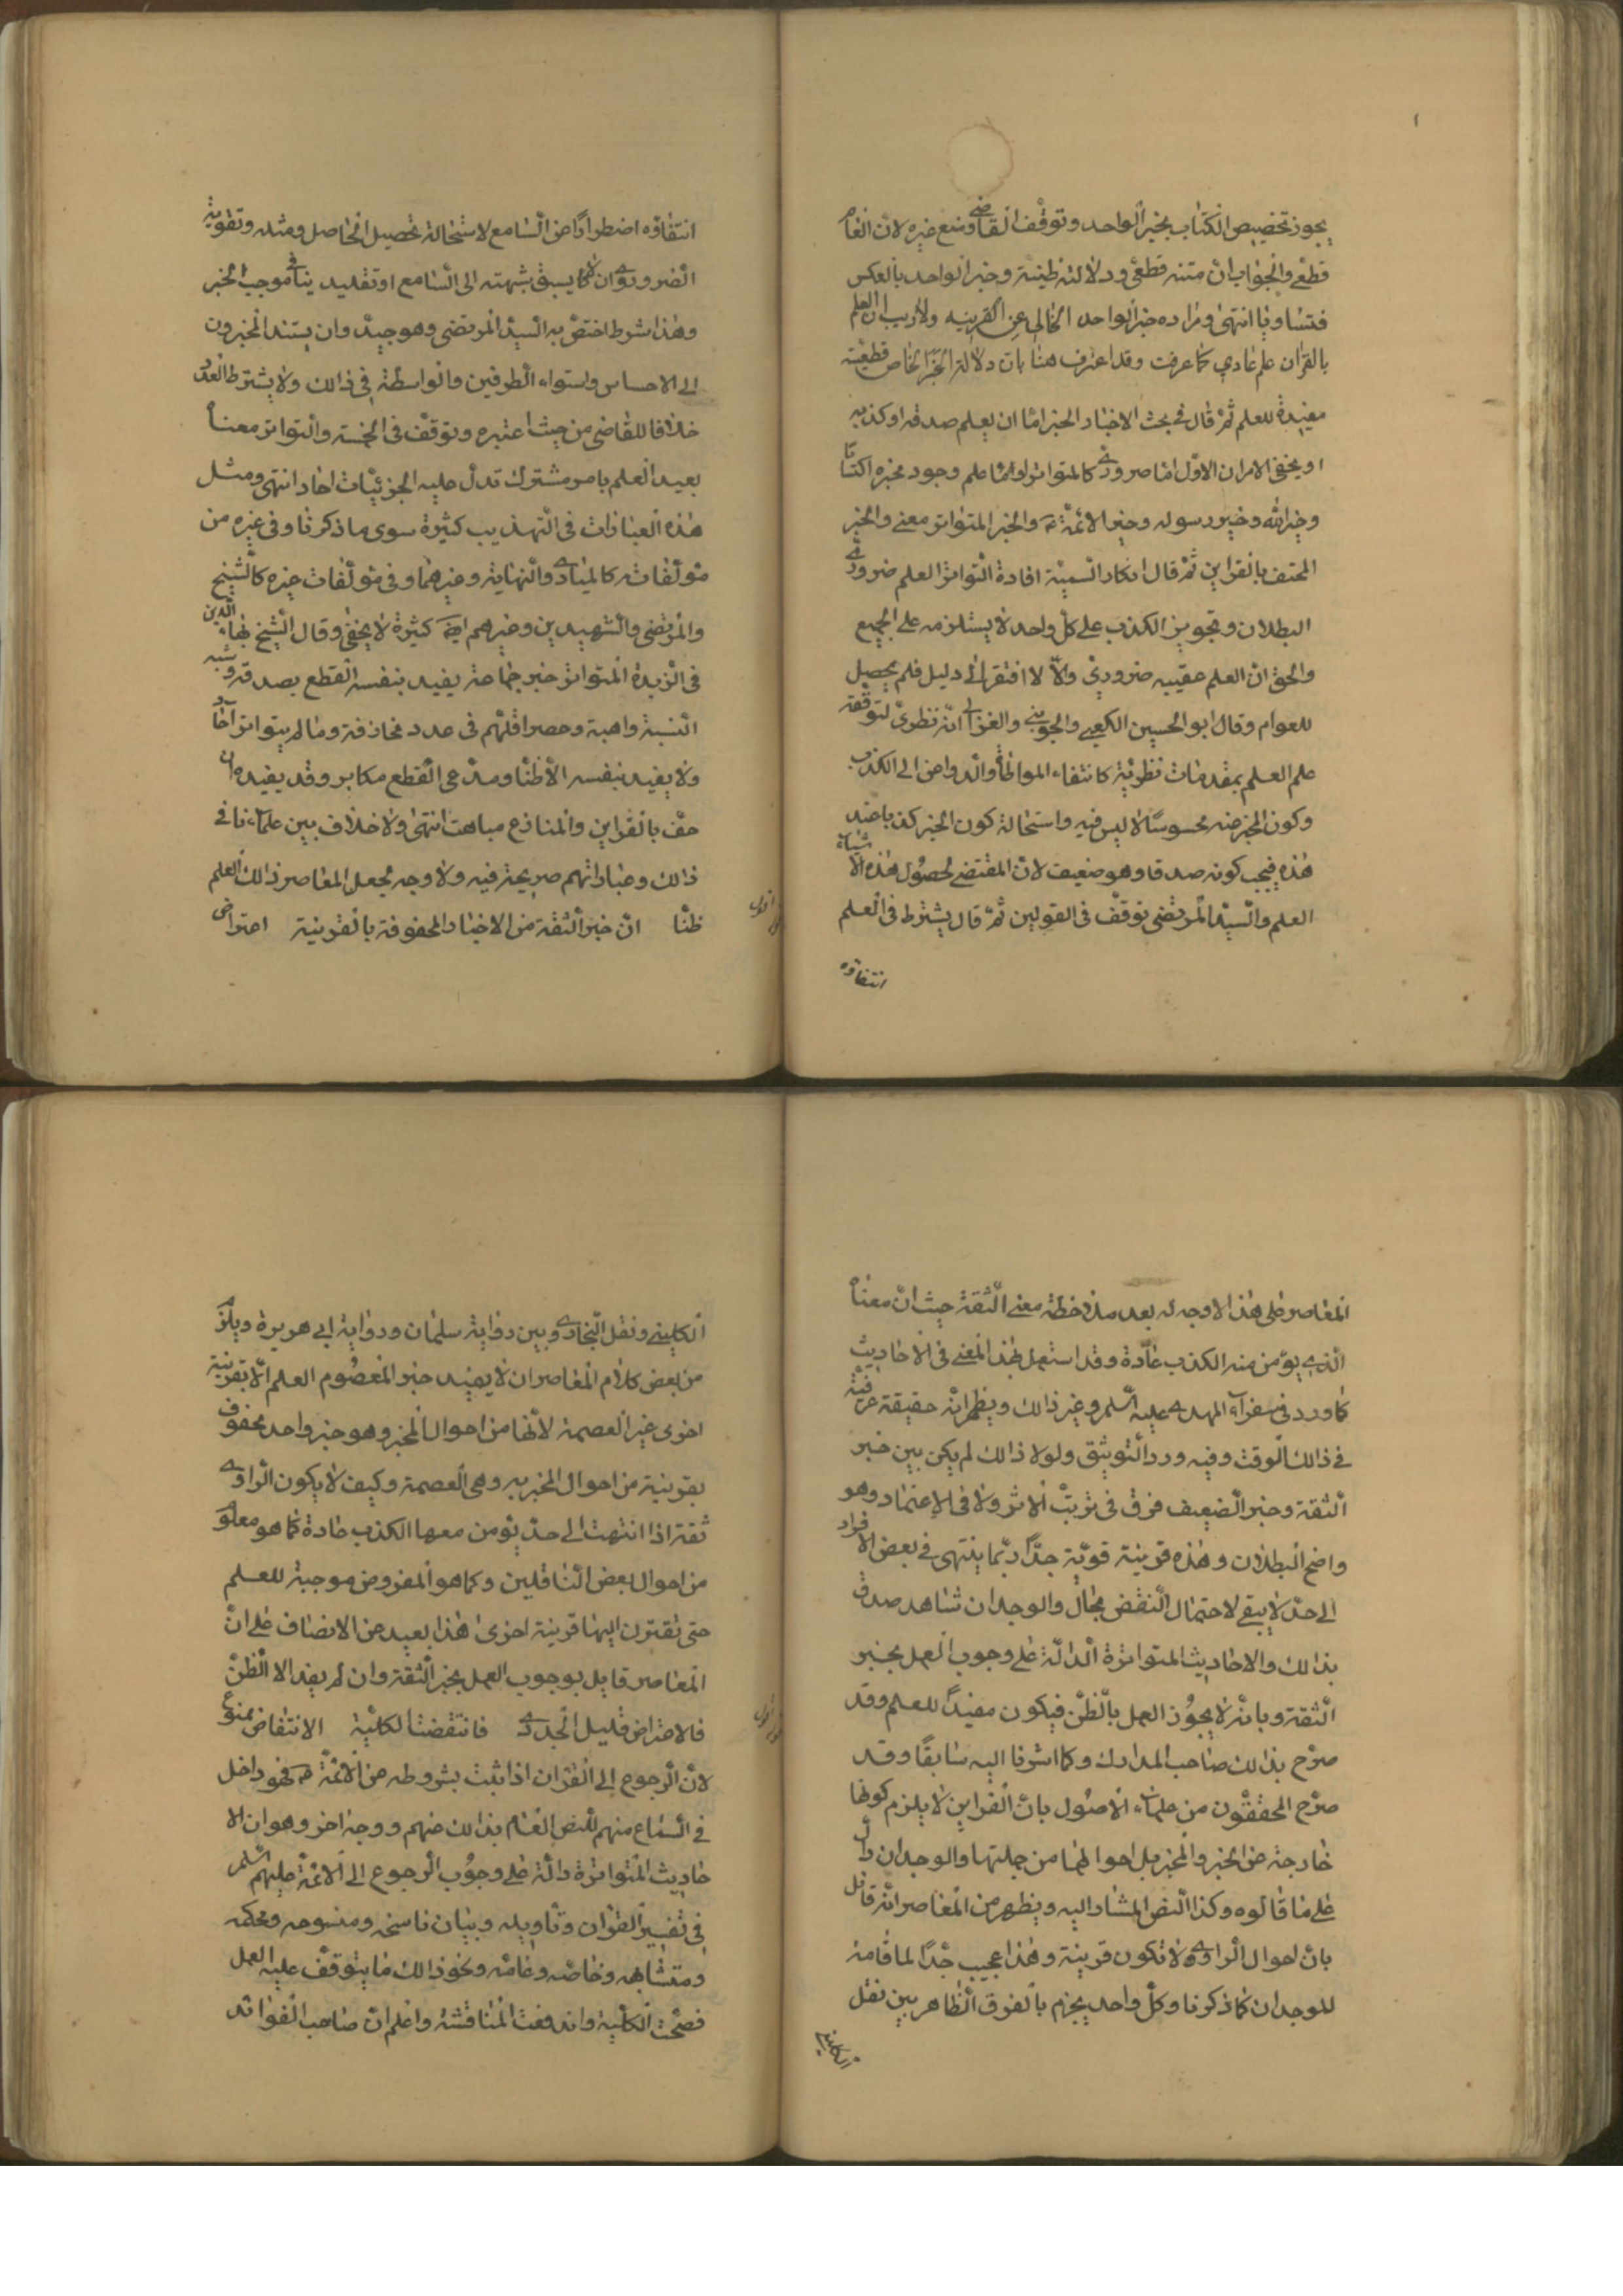 يجوز تخصيص الكتاب بخبر الواحد وتوقف القاضي ومنع غيره لان العام
قطعي والجواب ان متنه قطعي ودلالته ظنية وخبر الواحد بالعكس
فتساويا انتهى ومراده خبر الواحد الخالي عن القرينه ولا ريب ان العلم
بالقران علم عادي كما عرفت وقد اعترف هنا بان دلالة الخبر الخاص قطعية
مفيدة للعلم ثم قال في بحث الاخبار الخبر اما ان يعلم صدقه او كذبه
او يخفى الامران الاول اما ضروري كالمتواتر وما علم وجود مخبره اكتسابا
وخبر الله وخبر رسوله وخبر الائمة ع والخبر المتواتر معنى والخبر
المحتف بالقراين ثم قال انكار السمنية افادة التواتر العلم ضروري
البطلان وتجويز الكذب على كل واحد لا يستلزمه على الجميع
والحق ان العلم عقيبه ضروري والا لافتقر الى دليل فلم يحصل
للعوام وقال ابو الحسين الكعبي والجويني والغزالي انه نظري لتوقفه
علم العلم بمقدمات نظرية كانتفاء المواطأة والدواعي الى الكذب
وكون المخبر عنه محسوسا لا لبس فيه واستحالة كون الخبر كذبا عند
هذه فيجب كونه صدقا وهو ضعيف لان المقتضي لحصول هذه الاشياء
العلم والسيد المرتضى توقف في القولين ثم قال يشترط في العلم
انتفاؤه
انتفاؤه اضطرارا عن السامع لاستحالة تحصيل الحاصل ومثله وتقوية
الضروري وان لا يسبق شبهته الى السامع او تقليد ينافي موجب الخبر
وهذا شرط اختص به السيد المرتضى وهو جيد وان يستند المخبرون
الى الاحساس واستواء الطرفين والواسطة في ذالك ولا يشترط العدد
خلافا للقاضي من حيث اعتبره وتوقف في الخمسة والتواتر معنا
يفيد العلم بامر مشترك تدل عليه الجزئيات احاد انتهى ومثل
هذه العبارات في التهذيب كثيرة سوى ما ذكرنا وفي غيره من
مؤلفاته كالمبادي والنهاية وغيرهما وفي مؤلفات غيره كالشيخ
والمرتضى والشهيدين وغيرهم ايضا كثيرة لا يخفى وقال الشيخ بهاء الدين
في الزبدة المتواتر خبر جماعة يفيد بنفسه القطع بصدقه وشبه
السمنية واهية وحصر اقلهم في عدد مجازفة وما لم يتواتر آحاد
ولا يفيد بنفسه الا ظنا ومدعي القطع مكابر وقد يفيده ان
حف بالقراين والمنازع مباهت انتهى ولا خلاف بين علمآءنا في
ذالك وعباراتهم صريحة فيه ولا وجه لجعل المعاصر ذالك العلم
ظنا ان خبر الثقة من الاخبار المحفوفة بالقرينة اعتراض
اقول
المعاصر على هذا لا وجه له بعد ملاحظة معنى الثقة حيث ان معناه
الذي يؤمن منه الكذب عادة وقد استعمل بهذا المعنى في الاحاديث
كما ورد في سفرآء المهدي عليه السلم وغير ذالك ويظهر انه حقيقة عرفية
في ذالك الوقت وفيه ورد التوثيق ولولا ذالك لم يكن بين خبر
الثقة وخبر الضعيف فرق في ترتب الاثر ولا في الاعتماد وهو
واضح البطلان وهذه قرينة قوية جدا ربما ينتهي في بعض الافراد
الى حد لا يبقى لاحتمال النقض مجال والوجدان شاهد صدق
بذالك والاحاديث المتواترة الدالة على وجوب العمل بخبر
الثقة وبانه لا يجوز العمل بالظن فيكون مفيدا للعلم وقد
صرح بذالك صاحب المدارك وكما اشرنا اليه سابقا وقد
صرح المحققون من علماء الاصول بان القراين لا يلزم كونها
خارجة عن الخبر والمخبر بل احوالهما من جملتها والوجدان دال
على ما قالوه وكذا النص المشار اليه ويظهر من المعاصر انه قائل
بان احوال الراوي لا تكون قرينة وهذا عجيب جدا لما قامه
للوجدان كما ذكرنا وكل واحد يجزم بالفرق الظاهر بين نقل
الكليني
الكليني ونقل البخاري وبين رواية سلمان ورواية ابي هريرة ويلزم
من بعض كلام المعاصر ان لا يفيد خبر المعصوم العلم الا بقرينة
اخرى غير العصمة لانها من احوال المخبر وهو خبر واحد محفوف
بقرينة من احوال المخبر به وهي العصمة وكيف لا يكون الراوي
ثقة اذا انتهت الى حد يؤمن معها الكذب عادة كما هو معلوم
من احوال بعض الناقلين وكما هو المفروض موجبة للعلم
حتى تقترن اليها قرينة اخرى هذا بعيد من الانصاف على ان
المعاصر قايل بوجوب العمل بخبر الثقة وان لم يفد الا الظن
فالاعتراض قليل الجدوى فانتقضت الكلية الانتقاض ممنوع
اقول
لان الرجوع الى القران اذا ثبت بشروطه عن الائمة ع فهو داخل
في السماع منهم للنص العام بذالك عنهم ووجه اخر وهو ان الا
حاديث المتواترة دالة على وجوب الرجوع الى الائمة عليهم السلم
في تفسير القران وتاويله وبيان ناسخه ومنسوخه ومحكمه
ومتشابهه وخاصه وعامه ونحو ذالك مما يتوقف عليه العمل
فصحت الكلية واندفعت المناقشة واعلم ان صاحب الفوائد